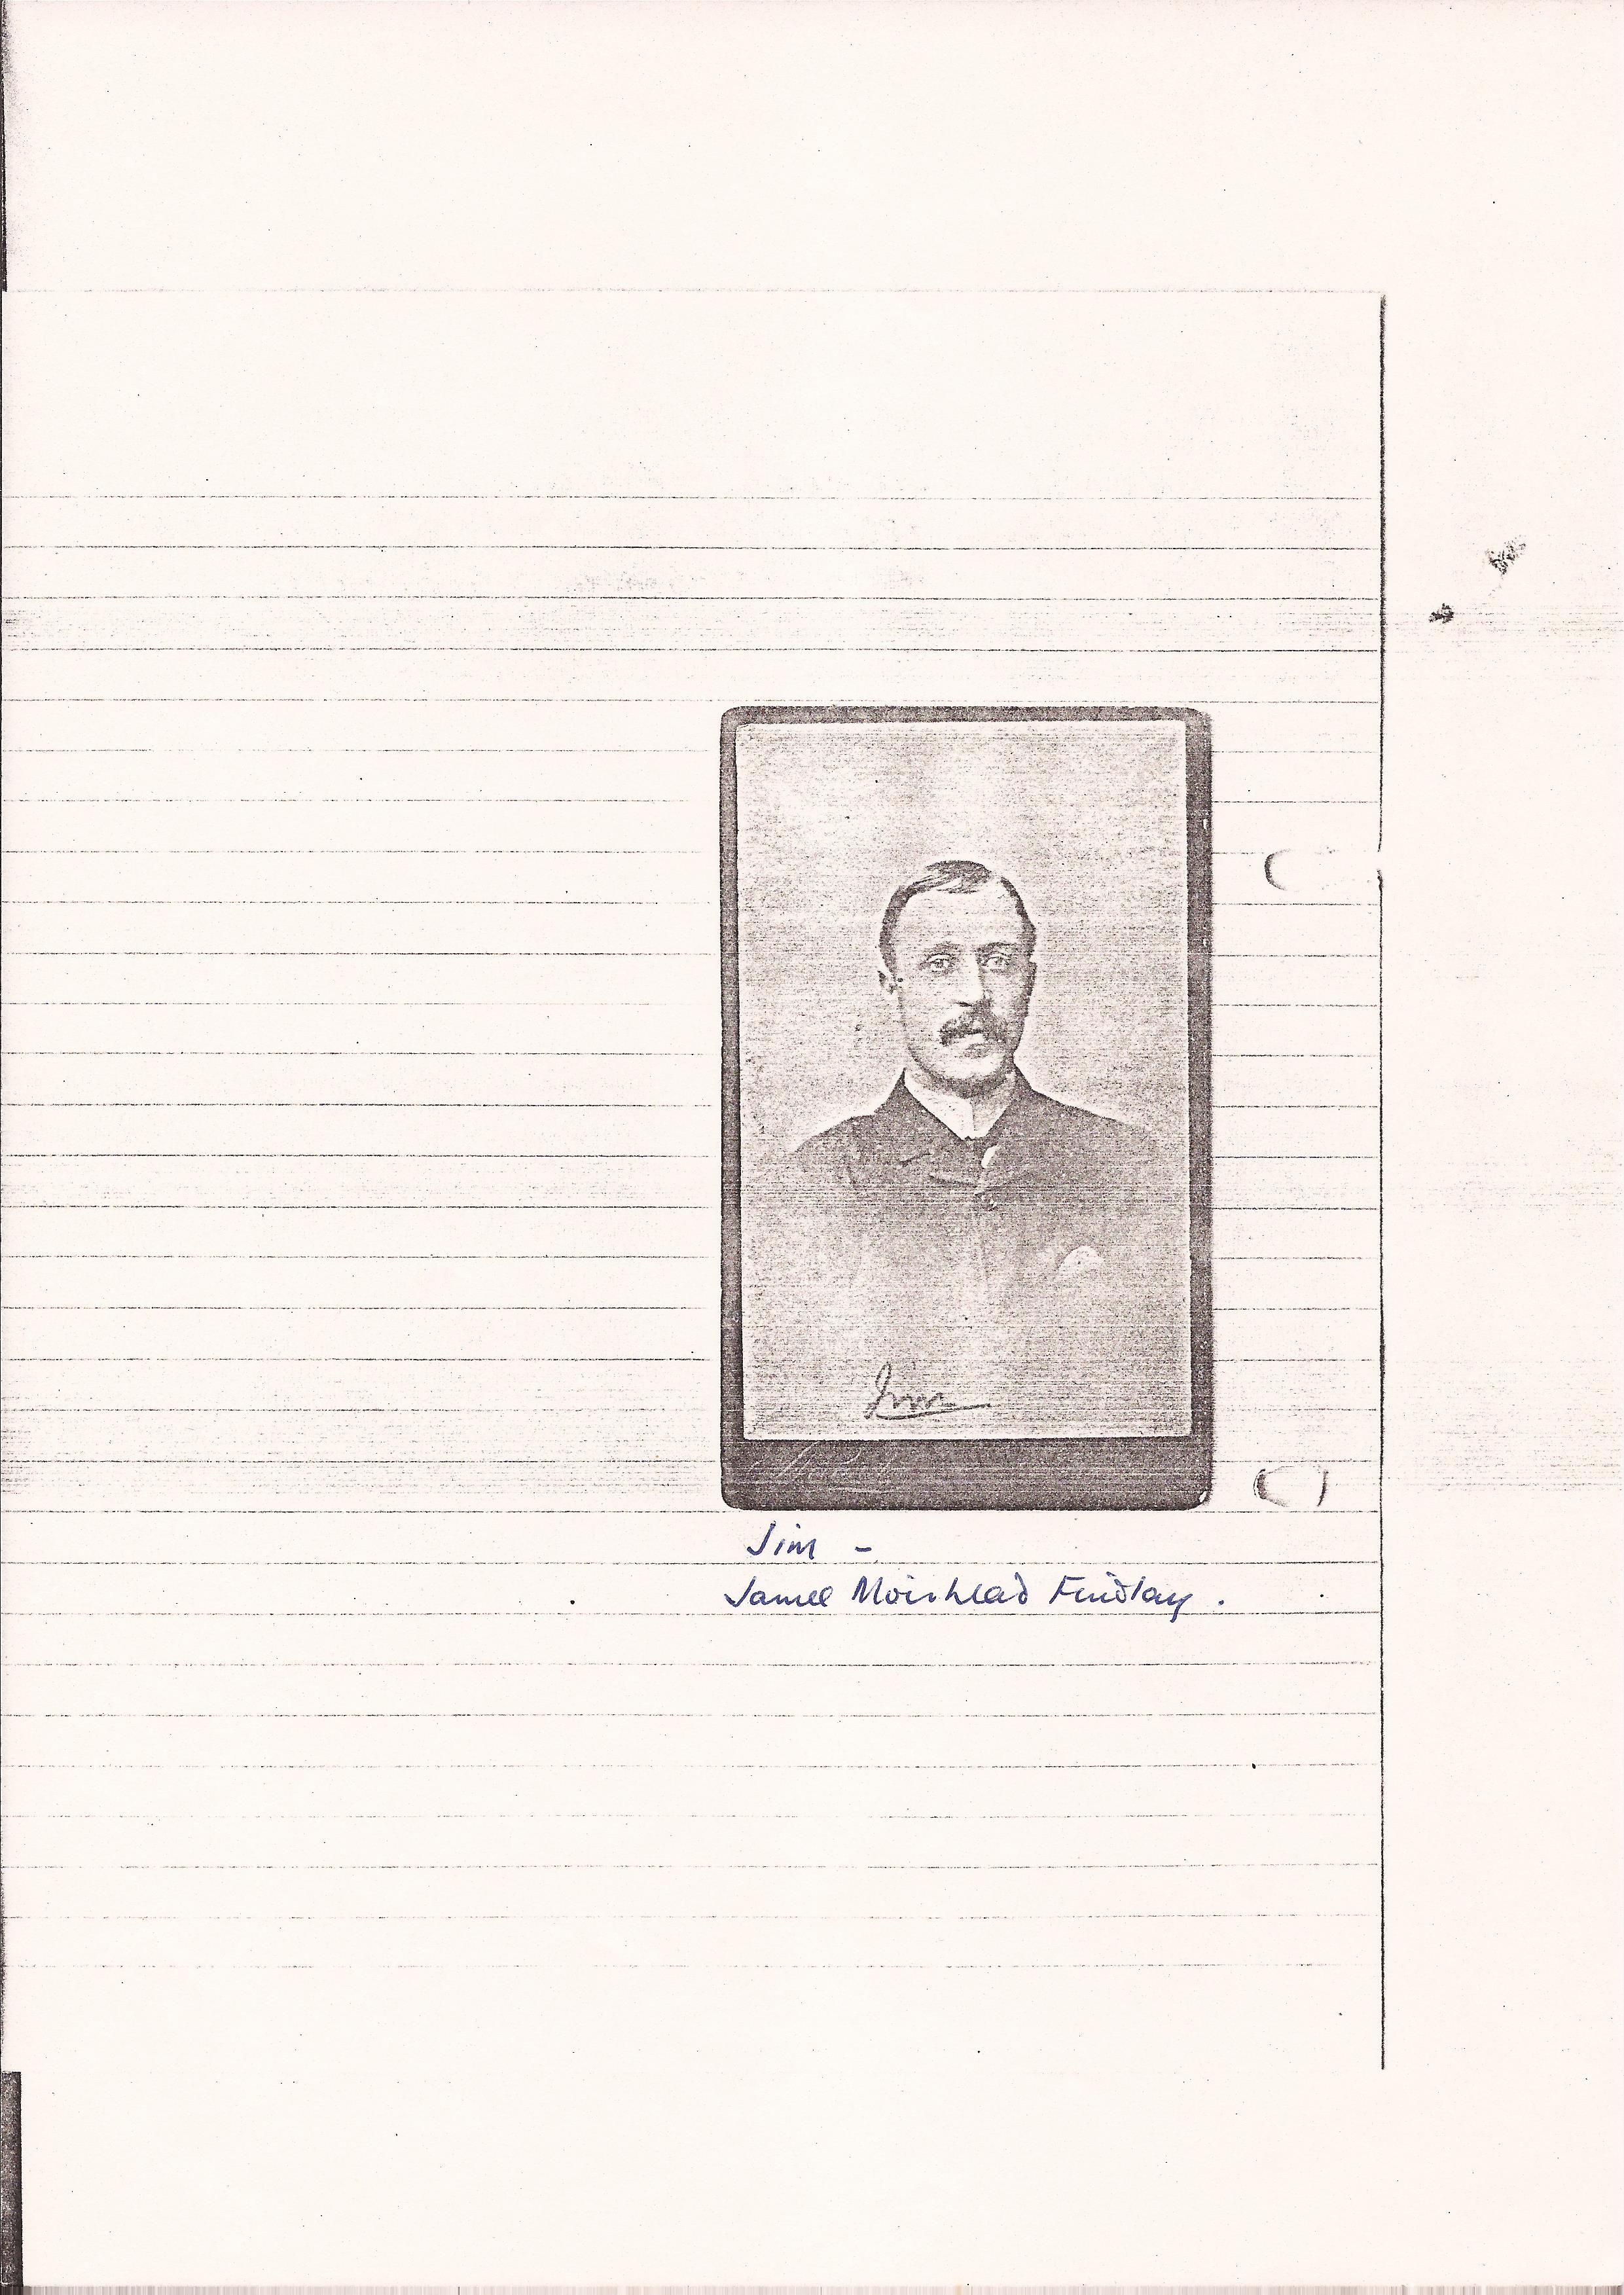 Jim
Jim -
James Moirhead Findlay .